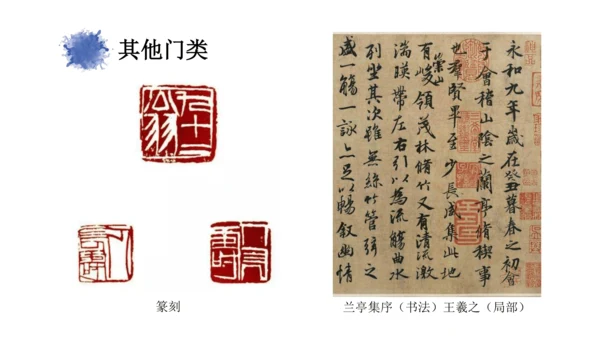 其他门类
永和九年歲在癸丑暮春之初會
于會稽山陰之蘭亭脩稧事
也羣賢畢至少長咸集此地
有崇山峻領茂林脩竹又有清流激
湍暎帶左右引以為流觴曲水
列坐其次雖無絲竹管弦之
盛一觴一詠亦足以暢叙幽情
篆刻
兰亭集序（书法）王羲之（局部）